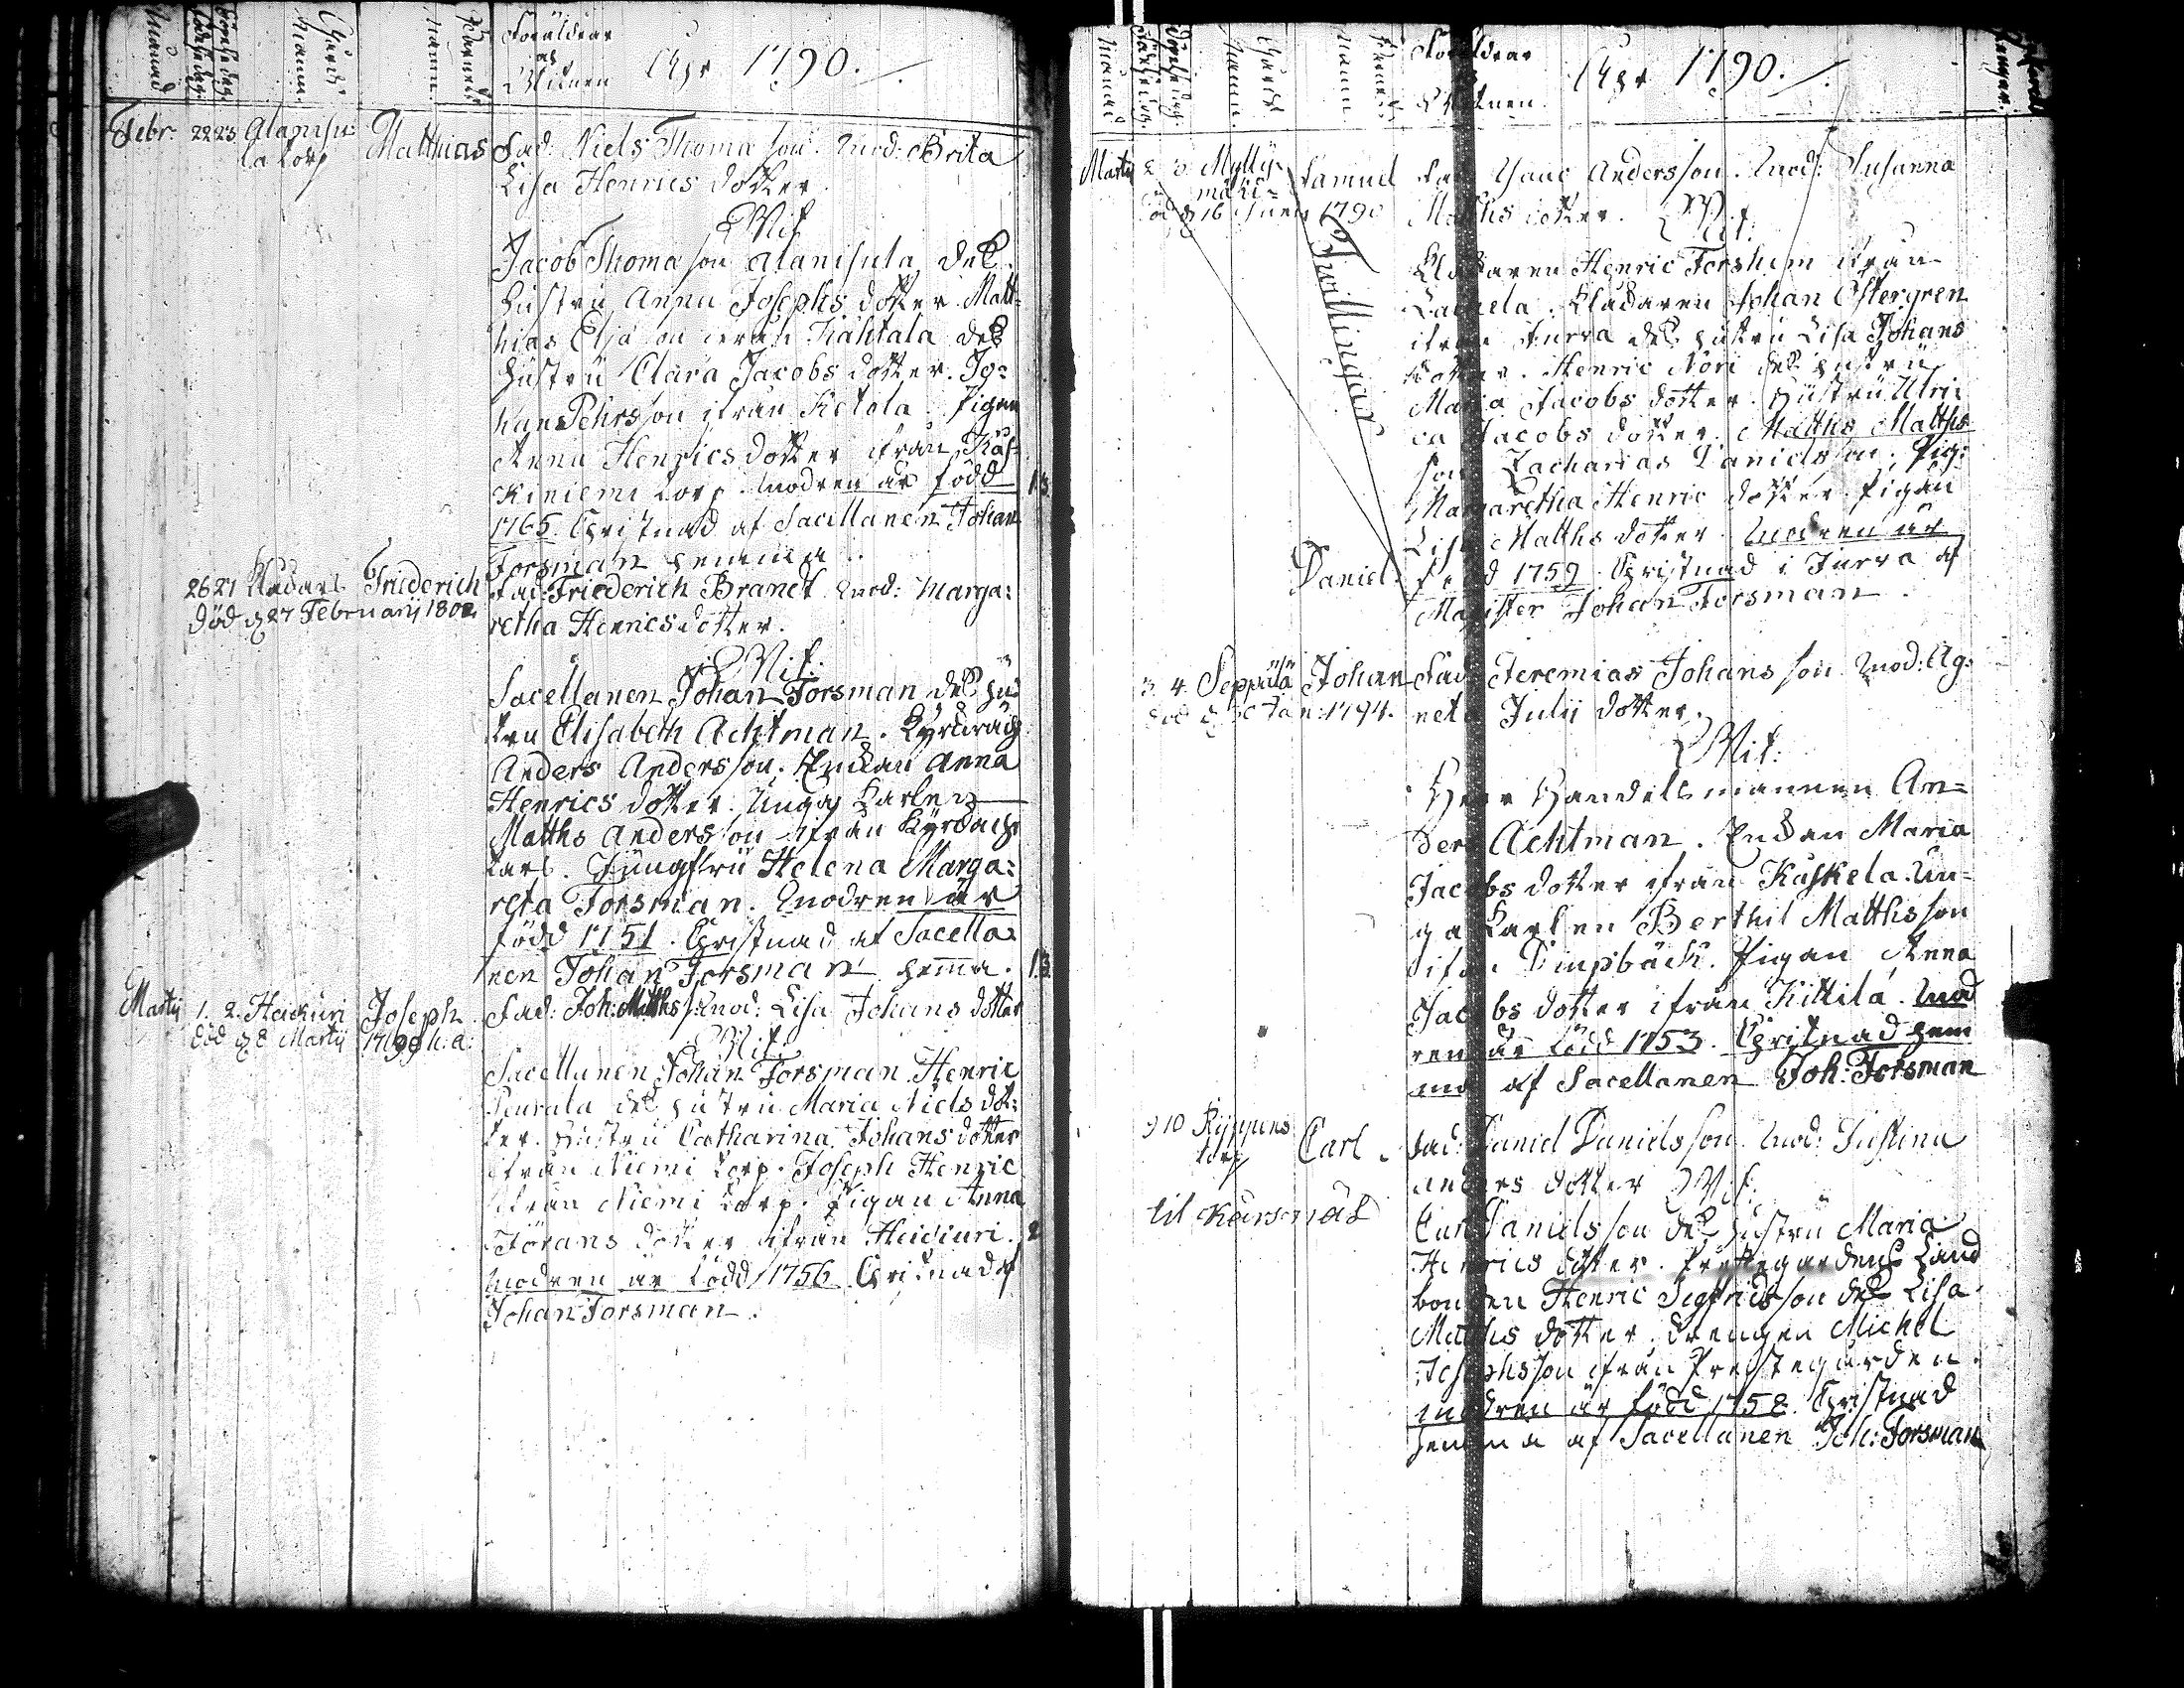 Månad
Födelsedag
Döpelsedag
Gårds
namn
Barnets
namn
Föräldrar
och
Witnen
Åhr 1790.
Febr. 22 23 Alanisu=
la torp
Matthias
Fad: Niels Thomasson. Mod: Brita
Lisa Henrics dotter.
Wit:
Jacob Thomasson Alanisula dess
hustru Anna Josephs dotter. Matt=
hias Elja son ifrån Kähtala dess
hustru Clara Jacobs dotter. Jo=
han Pehrsson ifrån Ketola. Pigan
Anna Henrics dotter ifrån Kås=
kiniemi torp. Modren är född
1765. Christnad af Sacellanen Johan
Forsman hemma.
13
26 27 Klådarl Friederich
död d 27 Februarij 1802
Fad: Friederich Brandt Mod: Marga:
retha Henricsdotter.
Wit:
Sacellanen Johan Forsman dess hus
tru Elisabeth Achtman.
Anders Andersson. Enkan Anna
Henrics dotter. Unga Karlen
Matths Andersson ifrån
Karl. Jungfru Helena Marga:
reta Forsman. Modren är
född 1751. Christnad af Sacella
nen Johan Forsman hemma.
13
Martij 1. 2. Heickuri Joseph
död d 8 Martij 1790 h.a.
Fad: Joh: Matths s: Mod: Lisa Johans dotter
Wit:
Sacellanen Johan Forsman. Henric
Peurala dess hustru Maria Niels dot=
ter. Hustru Catharina Johans dotter
ifrån Niemi torp. Joseph Henric
ifrån Niemi torp. Pigan Anna
Jörans dotter ifrån Heickuri.
2
Modren är född 1756. Christnad af
Johan Forsman.
Månad
Födelsedag
Döpelsedag
Gårds
namn
Barnets
namn
Föräldrar
Witnen
Åhr 1790.
Martij 2 3 Mylly=
mäki=
Samuel
död d 16 Junii 1790
Twillingar
Daniel
Fad: Isaac Andersson. Mod: Susanna
Matths dotter. Wit:
Klåckaren Henric Forshem ifrån
Klåckaren Johan Östergren
ifrån Jurva dess hustru Lisa Johans
dotter. Henric Nori dess hustru
Maria Jacobs dotter. Hustru Ulri
ca Jacobs dotter. Matths Matths
son Zacharias Danielsson. Pig:
Margaretha Henric dotter. Pigan
Lisa Matths dotter. Modren är
född 1759. Christnad i Jurva af
Magister Johan Forsman.
3. 4. Seppälä Johan
död d 30 Jan: 1794.
Fad: Jeremias Johansson Mod: Ag:
neta Julii dotter.
Wit:
Herr Handelsmannen An=
ders Achtman. Enkan Maria
Jacobs dotter ifrån Kaskela. Un=
ga Karlen Berthil Matthsson
ifr. Dimpbäck. Pigan Anna
Jacobs dotter ifrån Kittilä. Mod
ren är född 1753. Christnad hem
ma af Sacellanen Joh: Forsman
9 10 Ryppens
torp
Carl
til Kårsnäs
Fad: Daniel Danielsson. Mod: Justina
Anders dotter Wit:
Carl Danielsson dess hustru Maria
Henrics dotter. Prestegårdens Land
bonden Henric Sigfridsson dess Lisa
Matths dotter. Drengen Michel
Josephsson ifrån Prestegården.
Modren är född 1758. Christnad
hemma af Sacellanen Joh: Forsman